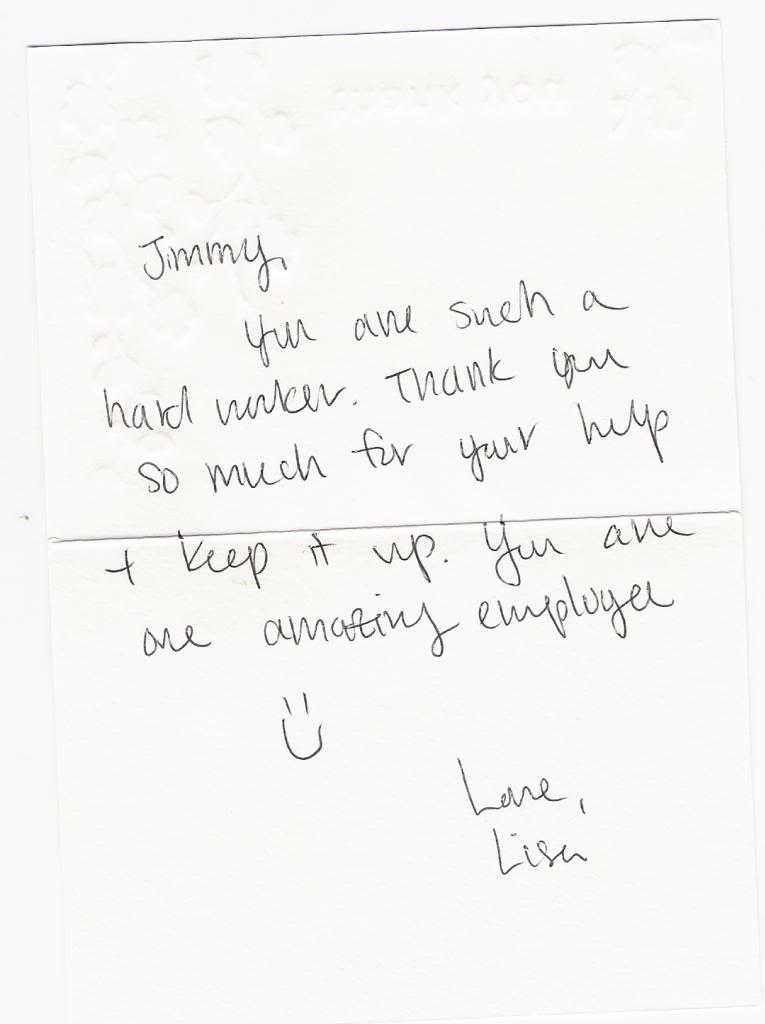 Jimmy,
You are such a
hard worker. Thank you
so much for your help
+ keep it up. You are
one amazing employee
Love,
Lisa